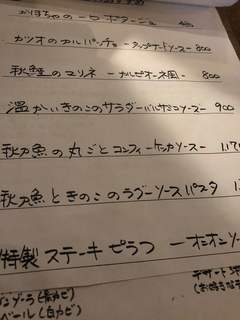 かぼちゃの一口ポタージュ
カツオのカルパッチョ ータップナードソースー 800
秋鮭のマリネ ーカルピオーネ風ー 800
温かいきのこのサラダーバルサミコソースー 900
秋刀魚の丸ごとコンフィーケッカソースー 1.1
秋刀魚ときのこのラグーソースパスタ 1.
特製 ステーキピラフ ーオニオンソ
デザート
(お好きな
ゴンゾーラ(青カビ)
ベール(白カビ)